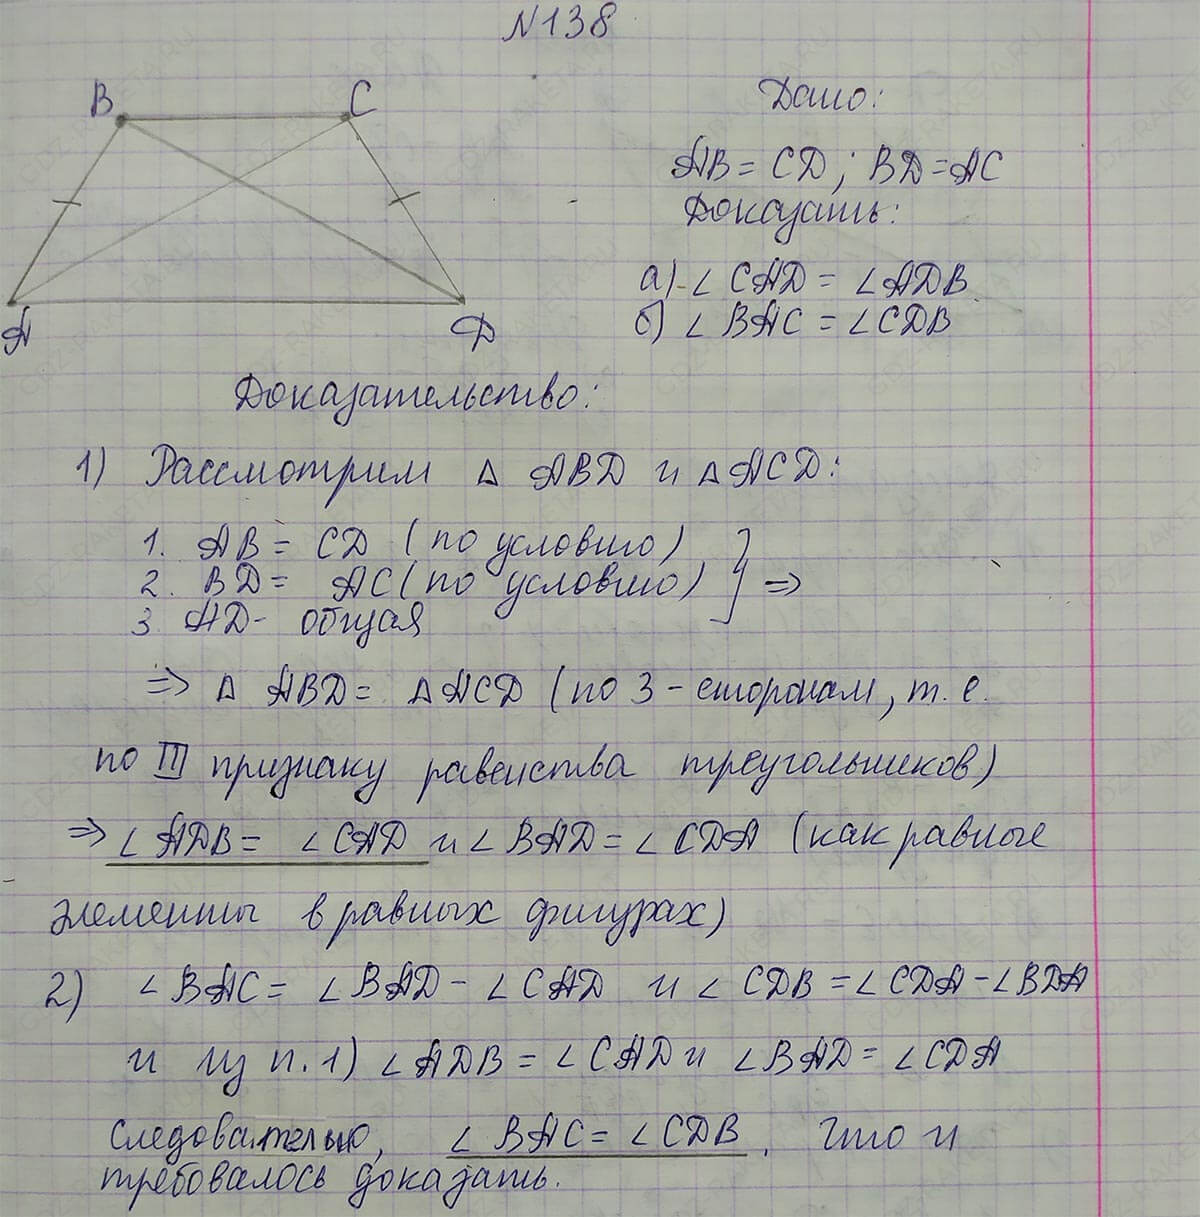 N138
B C
A D
Дано:
AB = CD; BD=AC
Доказать:
а) ∠CAD = ∠ADB
б) ∠BAC = ∠CDB
Доказательство:
1) Рассмотрим Δ ABD и ΔACD:
1. AB = CD (по условию)
2. BD = AC (по условию) } ⇒
3. AD- общая
⇒ Δ ABD = ΔACD (по 3-сторонам, т.е.
по III признаку равенства треугольников)
⇒ ∠ADB = ∠CAD и ∠BAD = ∠CDA (как равные
элементы в равных фигурах)
2) ∠BAC = ∠BAD - ∠CAD и ∠CDB = ∠CDA - ∠BDA
и из п.1) ∠ADB = ∠CAD и ∠BAD = ∠CDA
Следовательно, ∠BAC = ∠CDB, что и
требовалось доказать.